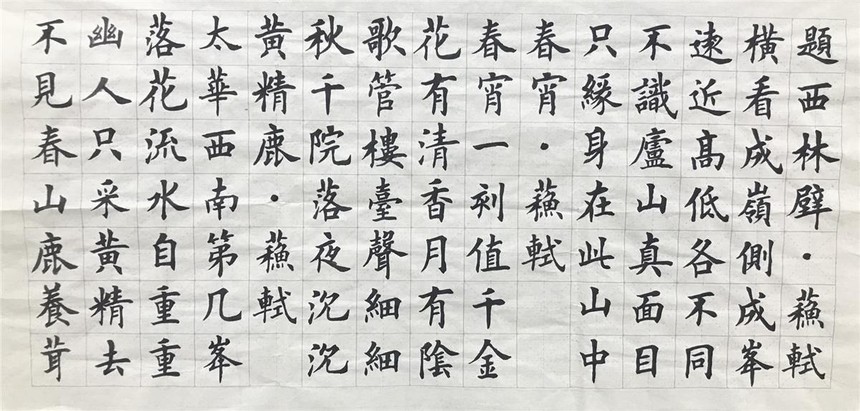 題西林壁·蘓軾
橫看成嶺側成峯
遠近高低各不同
不識廬山真面目
只緣身在此山中
春宵·蘓軾
春宵一刻值千金
花有清香月有陰
歌管樓臺聲細細
秋千院落夜沉沉
黃精鹿·蘓軾
太華西南第几峯
落花流水自重重
幽人只采黃精去
不見春山鹿養茸